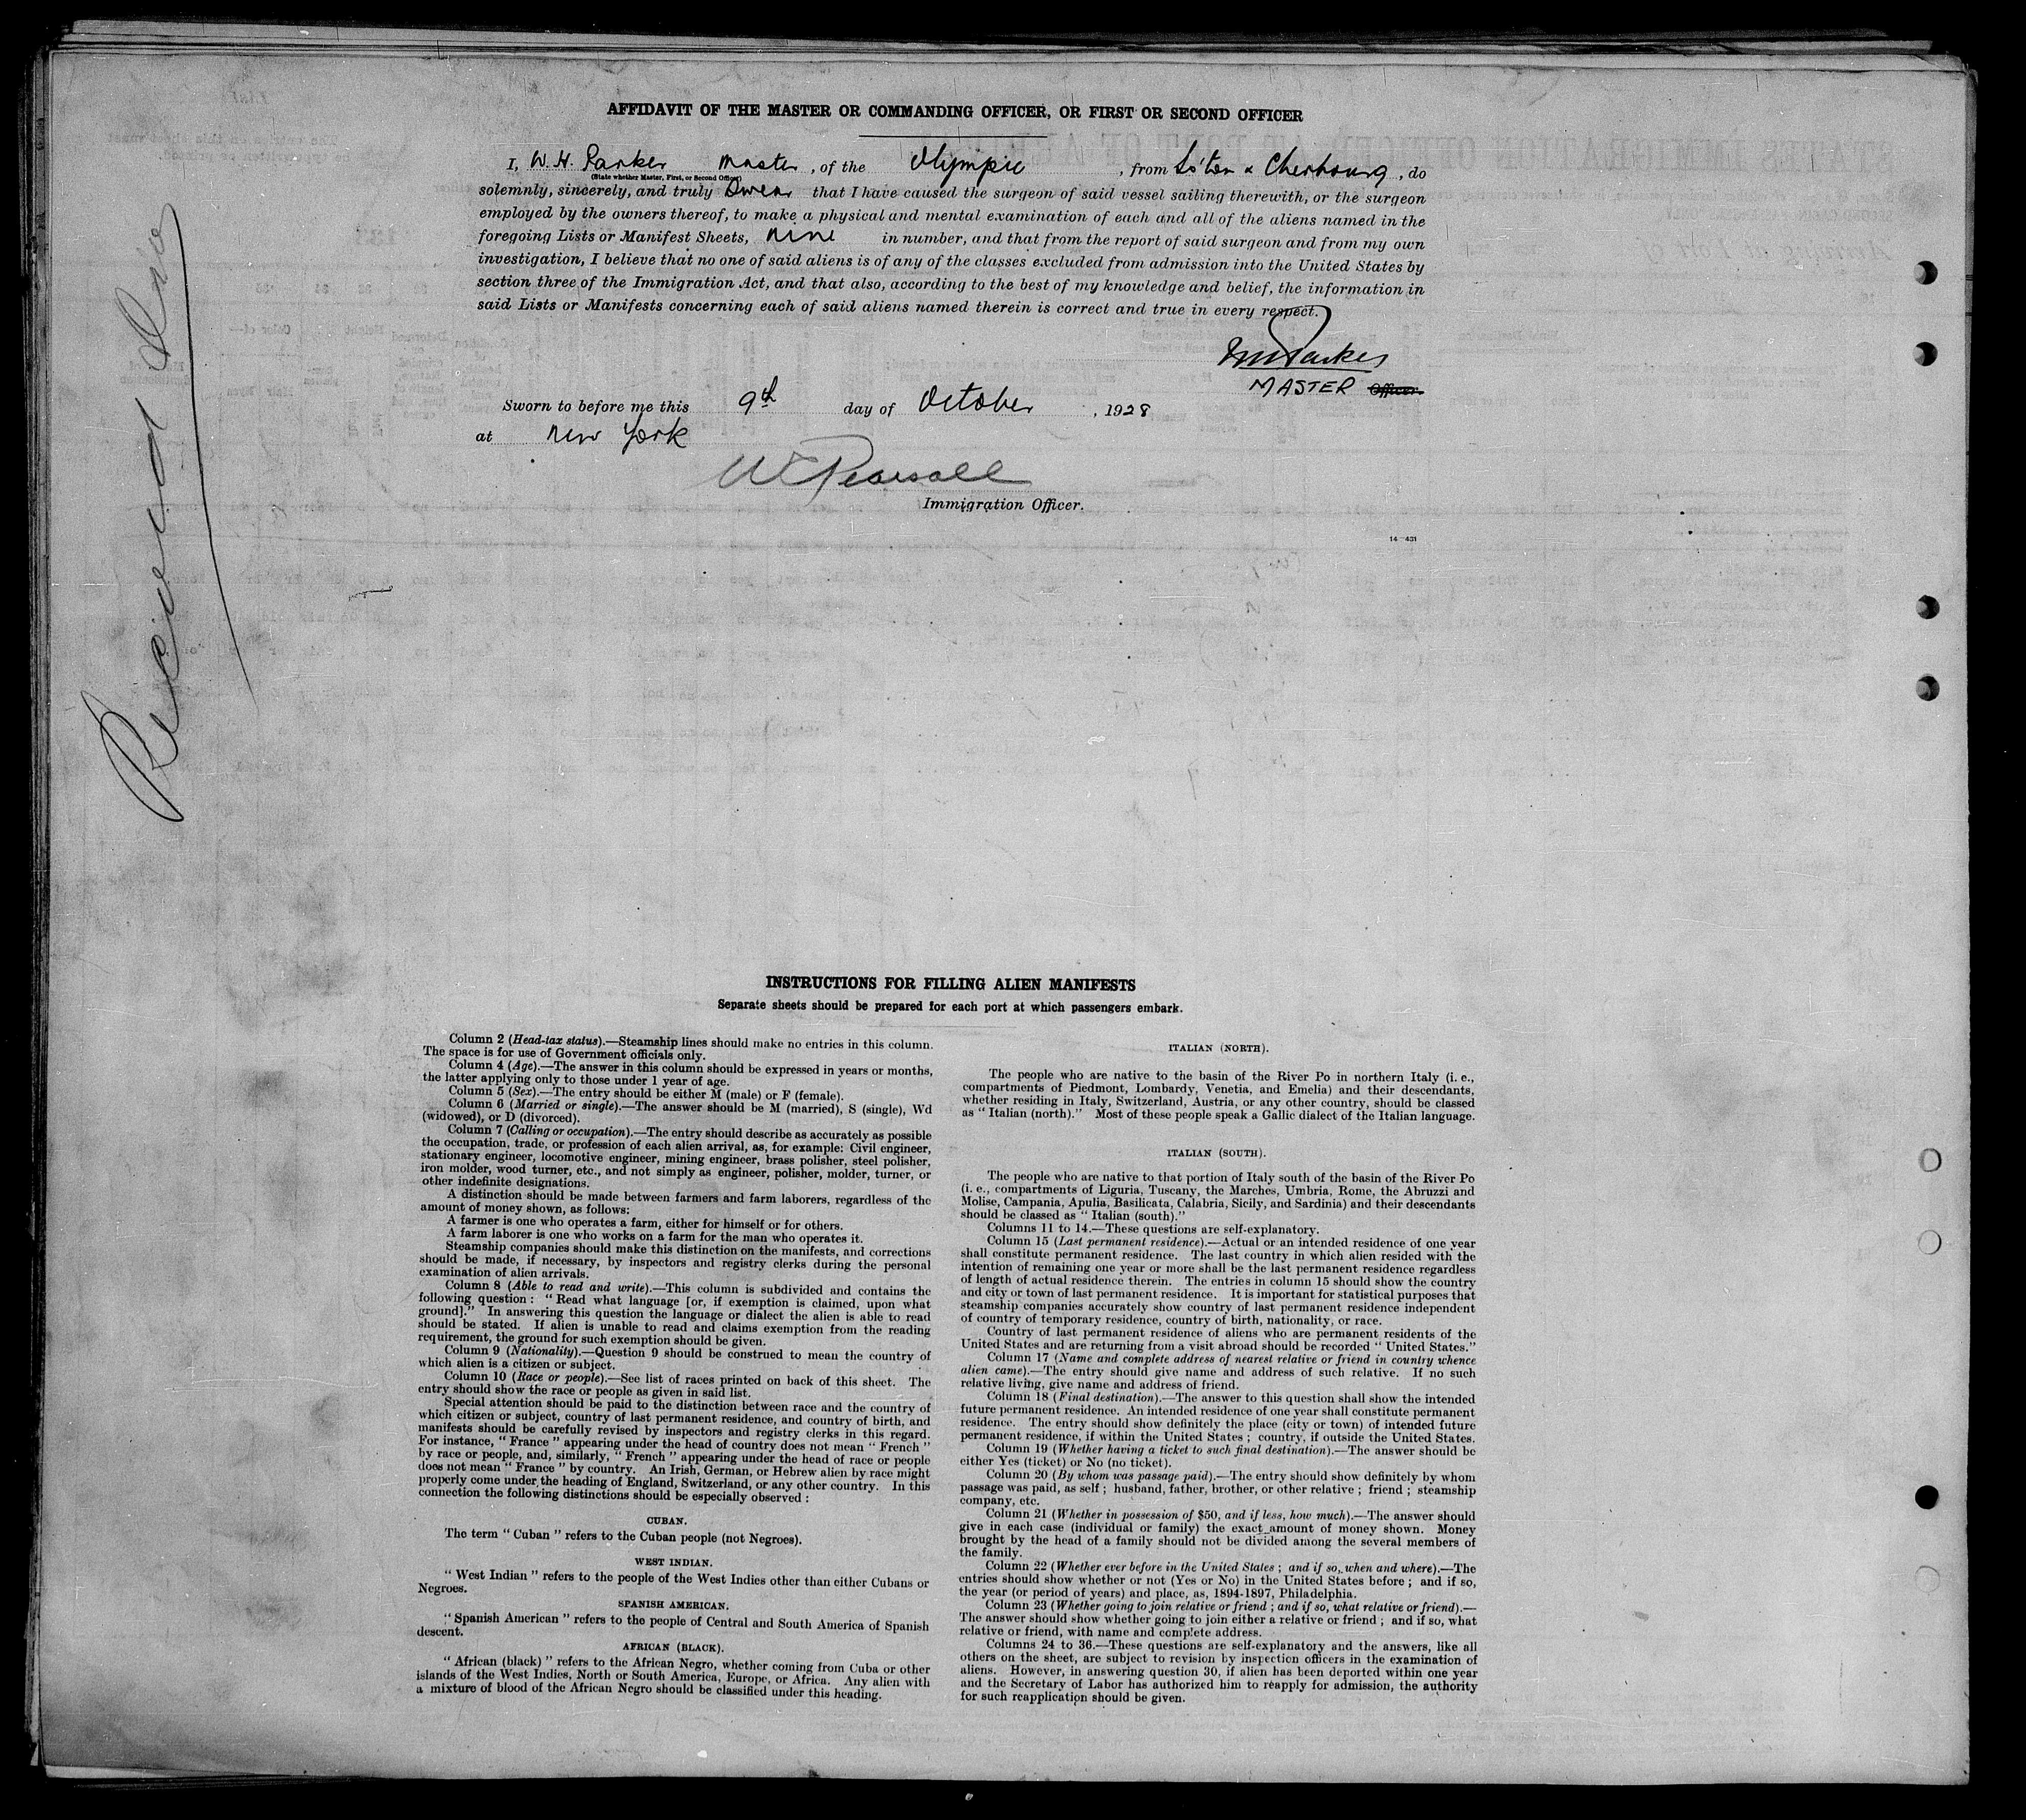 AFFIDAVIT OF THE MASTER OR COMMANDING OFFICER, OR FIRST OR SECOND OFFICER
I, W. H. Parker Master, of the Olympic, from So'ton & Cherbourg, do
(State whether Master, First, or Second Officer)
solemnly, sincerely, and truly Swear that I have caused the surgeon of said vessel sailing therewith, or the surgeon
employed by the owners thereof, to make a physical and mental examination of each and all of the aliens named in the
foregoing Lists or Manifest Sheets, nine in number, and that from the report of said surgeon and from my own
investigation, I believe that no one of said aliens is of any of the classes excluded from admission into the United States by
section three of the Immigration Act, and that also, according to the best of my knowledge and belief, the information in
said Lists or Manifests concerning each of said aliens named therein is correct and true in every respect.
WHParker
MASTER Officer.
Sworn to before me this 9th day of October, 1928
at New York
W Pearsall
Immigration Officer.
14—431
Received
INSTRUCTIONS FOR FILLING ALIEN MANIFESTS
Separate sheets should be prepared for each port at which passengers embark.
Column 2 (Head-tax status).—Steamship lines should make no entries in this column.
The space is for use of Government officials only.
Column 4 (Age).—The answer in this column should be expressed in years or months,
the latter applying only to those under 1 year of age.
Column 5 (Sex).—The entry should be either M (male) or F (female).
Column 6 (Married or single).—The answer should be M (married), S (single), Wd
(widowed), or D (divorced).
Column 7 (Calling or occupation).—The entry should describe as accurately as possible
the occupation, trade, or profession of each alien arrival, as, for example: Civil engineer,
stationary engineer, locomotive engineer, mining engineer, brass polisher, steel polisher,
iron molder, wood turner, etc., and not simply as engineer, polisher, molder, turner, or
other indefinite designations.
A distinction should be made between farmers and farm laborers, regardless of the
amount of money shown, as follows:
A farmer is one who operates a farm, either for himself or for others.
A farm laborer is one who works on a farm for the man who operates it.
Steamship companies should make this distinction on the manifests, and corrections
should be made, if necessary, by inspectors and registry clerks during the personal
examination of alien arrivals.
Column 8 (Able to read and write).—This column is subdivided and contains the
following question: "Read what language [or, if exemption is claimed, upon what
ground]." In answering this question the language or dialect the alien is able to read
should be stated. If alien is unable to read and claims exemption from the reading
requirement, the ground for such exemption should be given.
Column 9 (Nationality).—Question 9 should be construed to mean the country of
which alien is a citizen or subject.
Column 10 (Race or people).—See list of races printed on back of this sheet. The
entry should show the race or people as given in said list.
Special attention should be paid to the distinction between race and the country of
which citizen or subject, country of last permanent residence, and country of birth, and
manifests should be carefully revised by inspectors and registry clerks in this regard.
For instance, "France" appearing under the head of country does not mean "French"
by race or people, and, similarly, "French" appearing under the head of race or people
does not mean "France" by country. An Irish, German, or Hebrew alien by race might
properly come under the heading of England, Switzerland, or any other country. In this
connection the following distinctions should be especially observed:
CUBAN.
The term "Cuban" refers to the Cuban people (not Negroes).
WEST INDIAN.
"West Indian" refers to the people of the West Indies other than either Cubans or
Negroes.
SPANISH AMERICAN.
"Spanish American" refers to the people of Central and South America of Spanish
descent.
AFRICAN (BLACK).
"African (black)" refers to the African Negro, whether coming from Cuba or other
islands of the West Indies, North or South America, Europe, or Africa. Any alien with
a mixture of blood of the African Negro should be classified under this heading.
ITALIAN (NORTH).
The people who are native to the basin of the River Po in northern Italy (i. e.,
compartments of Piedmont, Lombardy, Venetia, and Emelia) and their descendants,
whether residing in Italy, Switzerland, Austria, or any other country, should be classed
as "Italian (north)." Most of these people speak a Gallic dialect of the Italian language.
ITALIAN (SOUTH).
The people who are native to that portion of Italy south of the basin of the River Po
(i. e., compartments of Liguria, Tuscany, the Marches, Umbria, Rome, the Abruzzi and
Molise, Campania, Apulia, Basilicata, Calabria, Sicily, and Sardinia) and their descendants
should be classed as "Italian (south)."
Columns 11 to 14.—These questions are self-explanatory.
Column 15 (Last permanent residence).—Actual or an intended residence of one year
shall constitute permanent residence. The last country in which alien resided with the
intention of remaining one year or more shall be the last permanent residence regardless
of length of actual residence therein. The entries in column 15 should show the country
and city or town of last permanent residence. It is important for statistical purposes that
steamship companies accurately show country of last permanent residence independent
of country of temporary residence, country of birth, nationality, or race.
Country of last permanent residence of aliens who are permanent residents of the
United States and are returning from a visit abroad should be recorded "United States."
Column 17 (Name and complete address of nearest relative or friend in country whence
alien came).—The entry should give name and address of such relative. If no such
relative living, give name and address of friend.
Column 18 (Final destination).—The answer to this question shall show the intended
future permanent residence. An intended residence of one year shall constitute permanent
residence. The entry should show definitely the place (city or town) of intended future
permanent residence, if within the United States; country, if outside the United States.
Column 19 (Whether having a ticket to such final destination).—The answer should be
either Yes (ticket) or No (no ticket).
Column 20 (By whom was passage paid).—The entry should show definitely by whom
passage was paid, as self; husband, father, brother, or other relative; friend; steamship
company, etc.
Column 21 (Whether in possession of $50, and if less, how much).—The answer should
give in each case (individual or family) the exact amount of money shown. Money
brought by the head of a family should not be divided among the several members of
the family.
Column 22 (Whether ever before in the United States; and if so, when and where).—The
entries should show whether or not (Yes or No) in the United States before; and if so,
the year (or period of years) and place, as, 1894-1897, Philadelphia.
Column 23 (Whether going to join relative or friend; and if so, what relative or friend).—
The answer should show whether going to join either a relative or friend; and if so, what
relative or friend, with name and complete address.
Columns 24 to 36.—These questions are self-explanatory and the answers, like all
others on the sheet, are subject to revision by inspection officers in the examination of
aliens. However, in answering question 30, if alien has been deported within one year
and the Secretary of Labor has authorized him to reapply for admission, the authority
for such reapplication should be given.